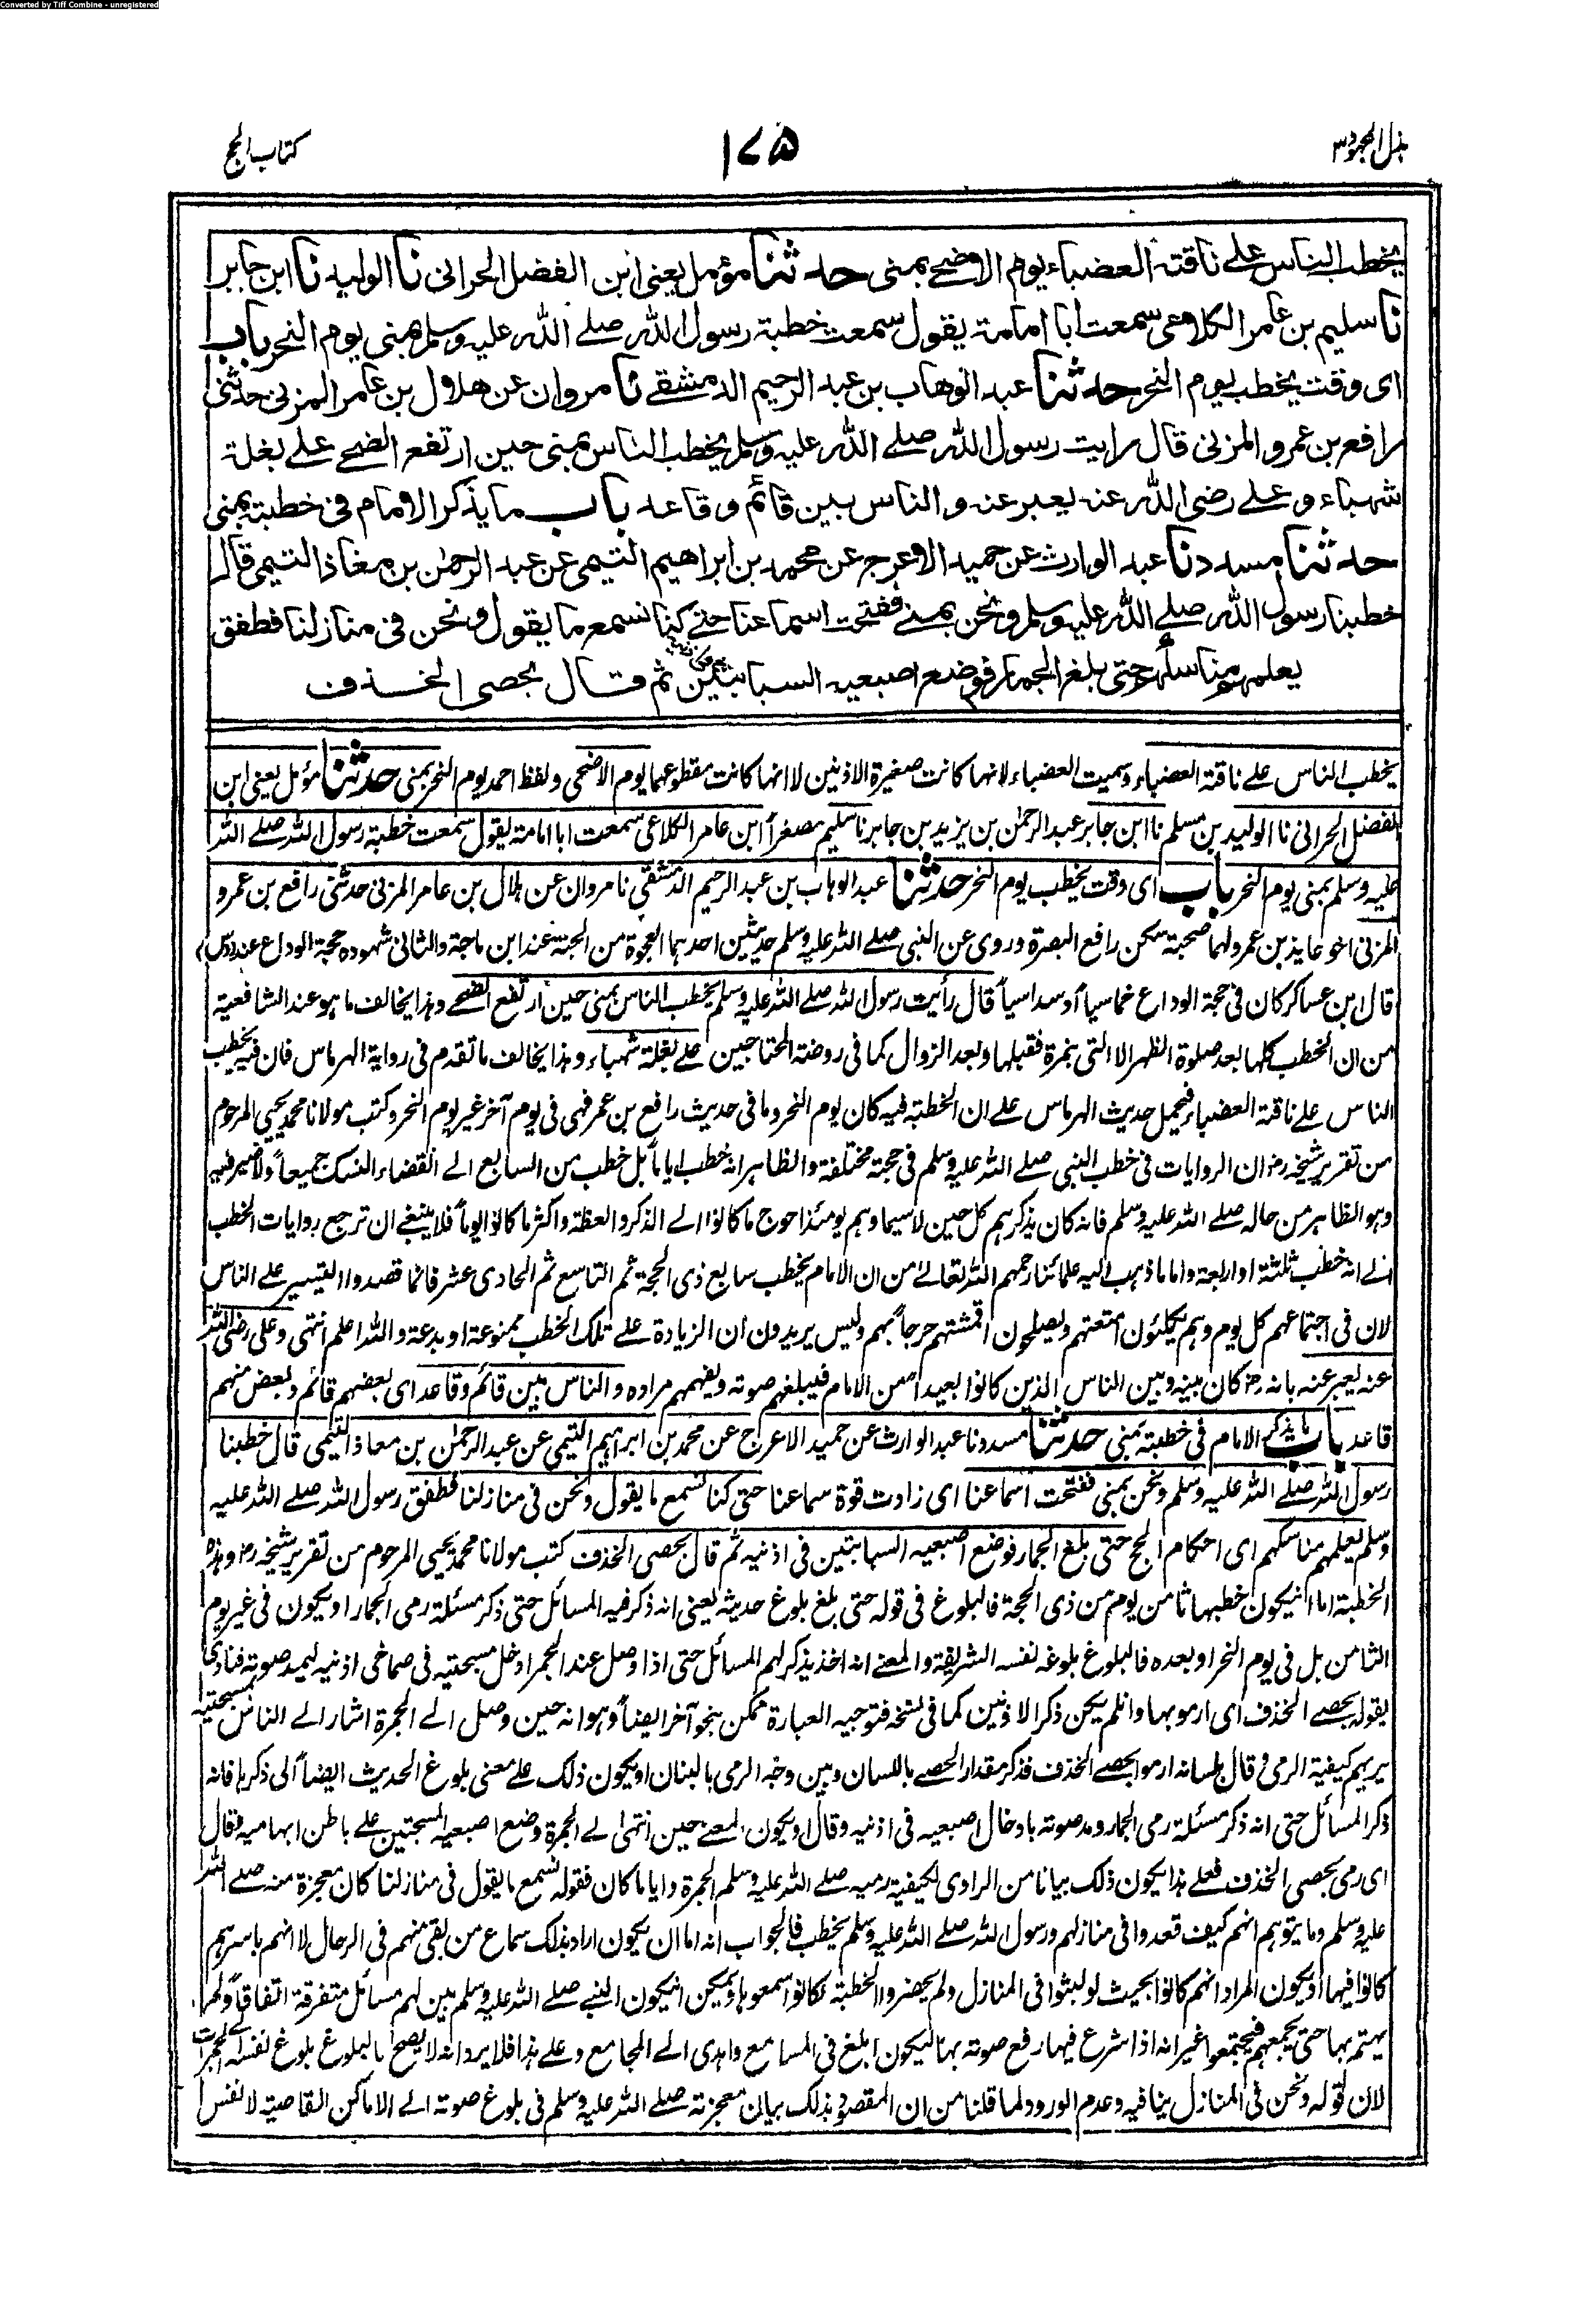 Converted by Tiff Combine - unregistered
بذل المجهود ٣
١٧٥
كتاب الحج
يخطب الناس على ناقته العضباء يوم الاضحى بمنى حدثنا مؤمل يعنى ابن الفضل الحرانى نا الوليد نا ابن جابر
نا سليم بن عامر الكلاعى سمعت ابا امامة يقول سمعت خطبة رسول الله صلے الله عليه وسلم بمنى يوم النحر باب
اى وقت يخطب يوم النحر حدثنا عبد الوهاب بن عبد الرحيم الدمشقے نا مروان عن هلال بن عامر المزنى حدثنى
رافع بن عمرو المزنى قال رايت رسول الله صلے الله عليه وسلم يخطب الناس بمنى حين ارتفع الضحے على بغلة
شهباء وعلے رضى الله عنه يعبر عنه والناس بين قائم وقاعد باب ما يذكر الامام فى خطبته بمنى
حدثنا مسدد نا عبد الوارث عن حميد الاعرج عن محمد بن ابراهيم التيمى عن عبد الرحمٰن بن معاذ التيمى قال
خطبنا رسول الله صلے الله عليه وسلم ونحن بمنے ففتحت اسماعنا حتے كنا نسمع ما يقول ونحن فى منازلنا فطفق
يعلمهم مناسكهم حتى بلغ الجمار فوضع اصبعيه السبابتين ثم قال بحصى الخذف
يخطب الناس علے ناقة العضباء وسميت العضباء لانها كانت صغيرة الاذنين لا انها كانت مقطوعها يوم الاضحى ولفظ احمد يوم النحر بمنى حدثنا مؤمل يعنى ابن
الفضل الحرانى نا الوليد بن مسلم نا ابن جابر عبد الرحمٰن بن يزيد بن جابر نا سليم مصغراً ابن عامر الكلاعى سمعت ابا امامة يقول سمعت خطبة رسول الله صلے الله
عليه وسلم بمنى يوم النحر باب اى وقت يخطب يوم النحر حدثنا عبد الوهاب بن عبد الرحيم الدمشقى نا مروان عن هلال بن عامر المزنى حدثنى رافع بن عمرو
المزنى اخو عايذ بن عمرو لهما صحبة سكن رافع البصرة وروى عن النبى صلے الله عليه وسلم حديثين احدهما العجوة من الجنة عند ابن ماجة والثانى شهوده حجة الوداع عند
قال ابن عساكر كان فى حجة الوداع خماسياً او سداسياً قال رأيت رسول الله صلے الله عليه وسلم يخطب الناس بمنى حين ارتفع الضحے وهذا يخالف ما هو عند الشافعية
من ان الخطب كلها بعد صلوة الظهر الا التى بنمرة فقبلها وبعد الزوال كما فى روضة المحتاجين علے بغلة شهباء وهذا يخالف ما تقدم فى رواية الهرماس فان فيه يخطب
الناس علے ناقة العضباء فيحمل حديث الهرماس على ان الخطبة فيه كان يوم النحر وما فى حديث رافع بن عمر فهى فى يوم آخر غير يوم النحر وكتب مولانا محمد يحيى المرحوم
من تقرير شيخه ره ان الروايات فى خطب النبى صلے الله عليه وسلم فى حجة مختلفة والظاهر انه خطب اياماً بل خطب من السابع الے القضاء النسك جميعاً ولا ضير فيه
وهو الظاهر من حاله صلے الله عليه وسلم فانه كان يذكرهم كل حين لا سيما وهم يومئذ احوج ما كانوا الے الذكر والعظة واكثر ما كانوا يوماً فلا ينبغے ان ترجع روايات الخطب
الے انه خطب ثلثة او اربعة واما ما ذهب اليه علمائنا رحمهم الله تعالےٰ من ان الامام يخطب سابع ذى الحجة ثم التاسع ثم الحادى عشر فانما قصدوا التيسير علے الناس
لان فى اجتماعهم كل يوم وهم يكلئون امتعتهم ويصلحون اقمشتهم حرجاً بهم وليس يريدون ان الزيادة علے تلك الخطب ممنوعة او بدعة والله اعلم انتهى وعلى رضى الله
عنه يعبر عنه بانه ره كان بينه وبين الناس الذين كانوا بعيدا من الامام فيبلغهم صوته ويفهمهم مراده والناس بين قائم وقاعد اى بعضهم قائم وبعض منهم
قاعد باب ما يذكر الامام فى خطبته بمنى حدثنا مسدد نا عبد الوارث عن حميد الاعرج عن محمد بن ابراهيم التيمى عن عبد الرحمٰن بن معاذ التيمى قال خطبنا
رسول الله صلے الله عليه وسلم ونحن بمنى ففتحت اسماعنا اى زادت قوة سماعنا حتى كنا نسمع ما يقول ونحن فى منازلنا فطفق رسول الله صلے الله عليه
وسلم يعلمهم مناسكهم اى احكام الحج حتى بلغ الجمار فوضع اصبعيه السبابتين فى اذنيه ثم قال بحصى الخذف كتب مولانا محمد يحيى المرحوم من تقرير شيخه ره وهذه
الخطبة اما ان يكون خطبها ثامن يوم من ذى الحجة فالبلوغ فى قوله حتى بلغ بلوغ حديثه يعنى انه ذكر فيه المسائل حتى ذكر مسئلة رمى الجمار او يكون فى غير يوم
الثامن بل فى يوم النحر او بعده فالبلوغ بلوغه نفسه الشريفة والمعنے انه اخذ يذكر لهم المسائل حتى اذا وصل عند الجمر ادخل مسبحتيه فى صماخى اذنيه ليمد صوته فنادى
بقوله بحصے الخذف اى ارموا بها وان لم يكن ذكر الاذنين كما فى نسخة فتوجيه العبارة ممكن بنحو آخر ايضاً وهو انه حين وصل الے الجمرة اشار الے الناس بمسبحتيه
يريهم كيفية الرمى وقال بلسانه ارموا بحصے الخذف فذكر مقدار الحصے باللسان وبين وجه الرمى بالبنان او يكون ذلك علے معنى بلوغ الحديث ايضاً الى ذكرها فانه
ذكر المسائل حتى انه ذكر مسئلة رمى الجمار ومد صوته بادخال اصبعيه فى اذنيه وقال او يكون المعنے حين انتهى الے الجمرة وضع اصبعيه المسبحتين علے باطن ابهاميه فقال
اى رمى بحصى الخذف فعلے هذا يكون ذلك بيانا من الراوى لكيفية رميه صلے الله عليه وسلم الجمرة وايا ما كان فقوله نسمع ما يقول فى منازلنا كان معجزة منه صلے الله
عليه وسلم وما يتوهم انهم كيف قعدوا فى منازلهم ورسول الله صلے الله عليه وسلم يخطب فالجواب انه اما ان يكون اراد بذلك سماع من بقى منهم فى الرحال لا انهم باسرهم
كانوا فيها او يكون المراد انهم كانوا بحيث لو لبثوا فى المنازل ولم يحضروا الخطبة لكانوا سمعوها ويمكن ان يكون النبے صلے الله عليه وسلم بين لهم مسائل متفرقة اتفاقاً ولم
يهتم بها حتى يجمعهم فيجتمعوا غير انه اذا شرع فيها رفع صوته بها ليكون ابلغ فى المسامع واهدى الے المجامع وعلے هذا فلا يرد انه لا يصح البلوغ بلوغ نفسه الے الجمرات
لان قوله ونحن فى المنازل ينافيه وعدم الورود لما قلنا من ان المقصود بذلك بيان معجزته صلے الله عليه وسلم فى بلوغ صوته الے الاماكن القاصية لا نفس